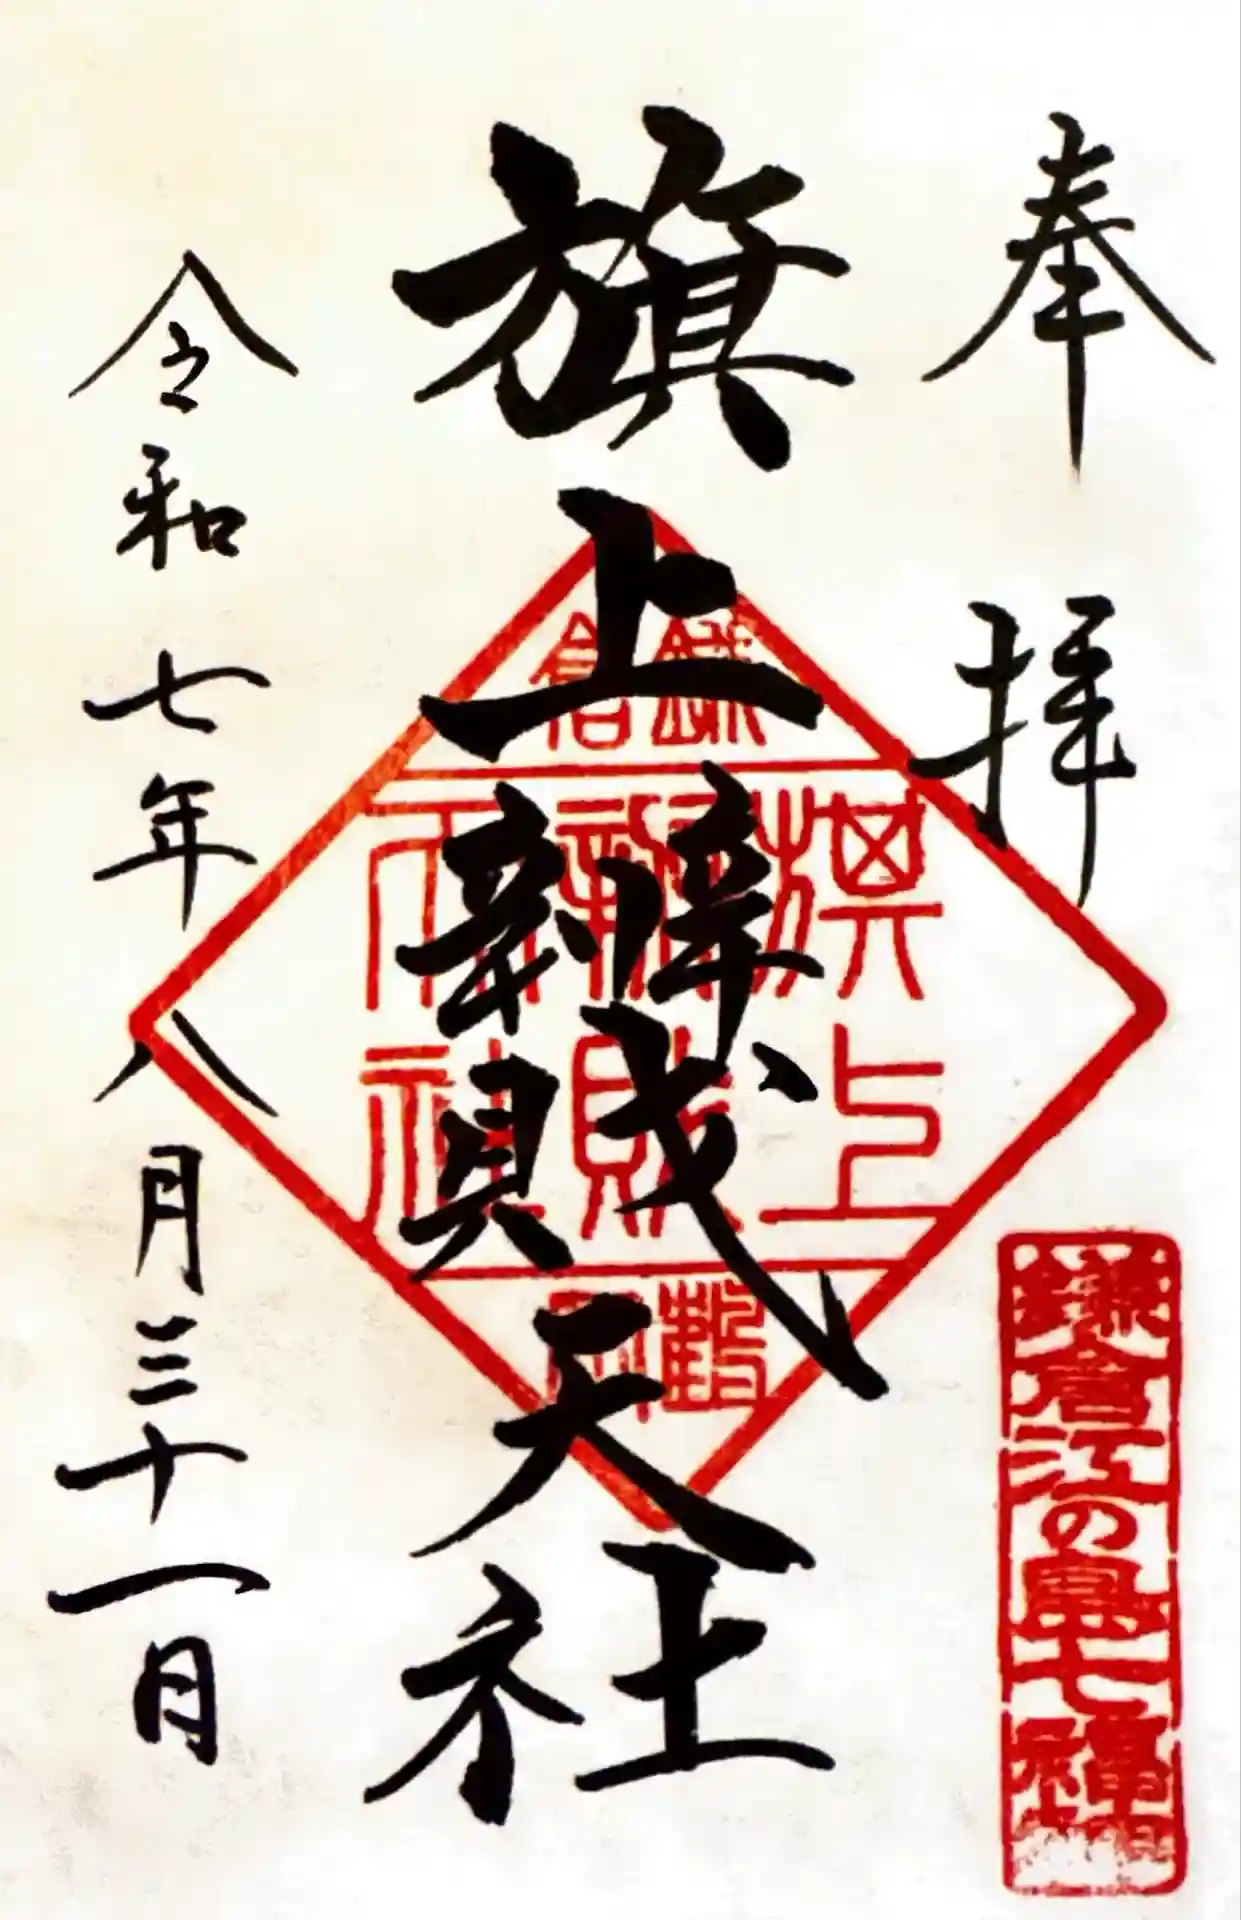 奉拝
鎌倉江の島七福神
旗上辨財天社
鎌倉
旗上
辨財
天社
鶴岡
令和七年八月三十一日